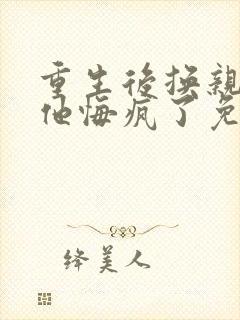 重生後換親
他悔瘋了免
絳美人